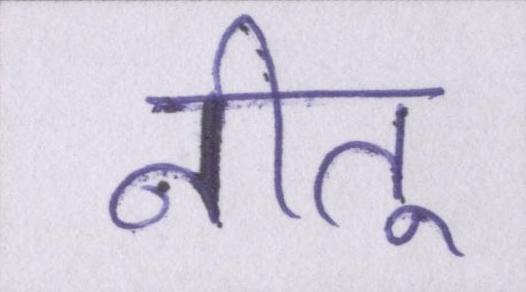 नीतू